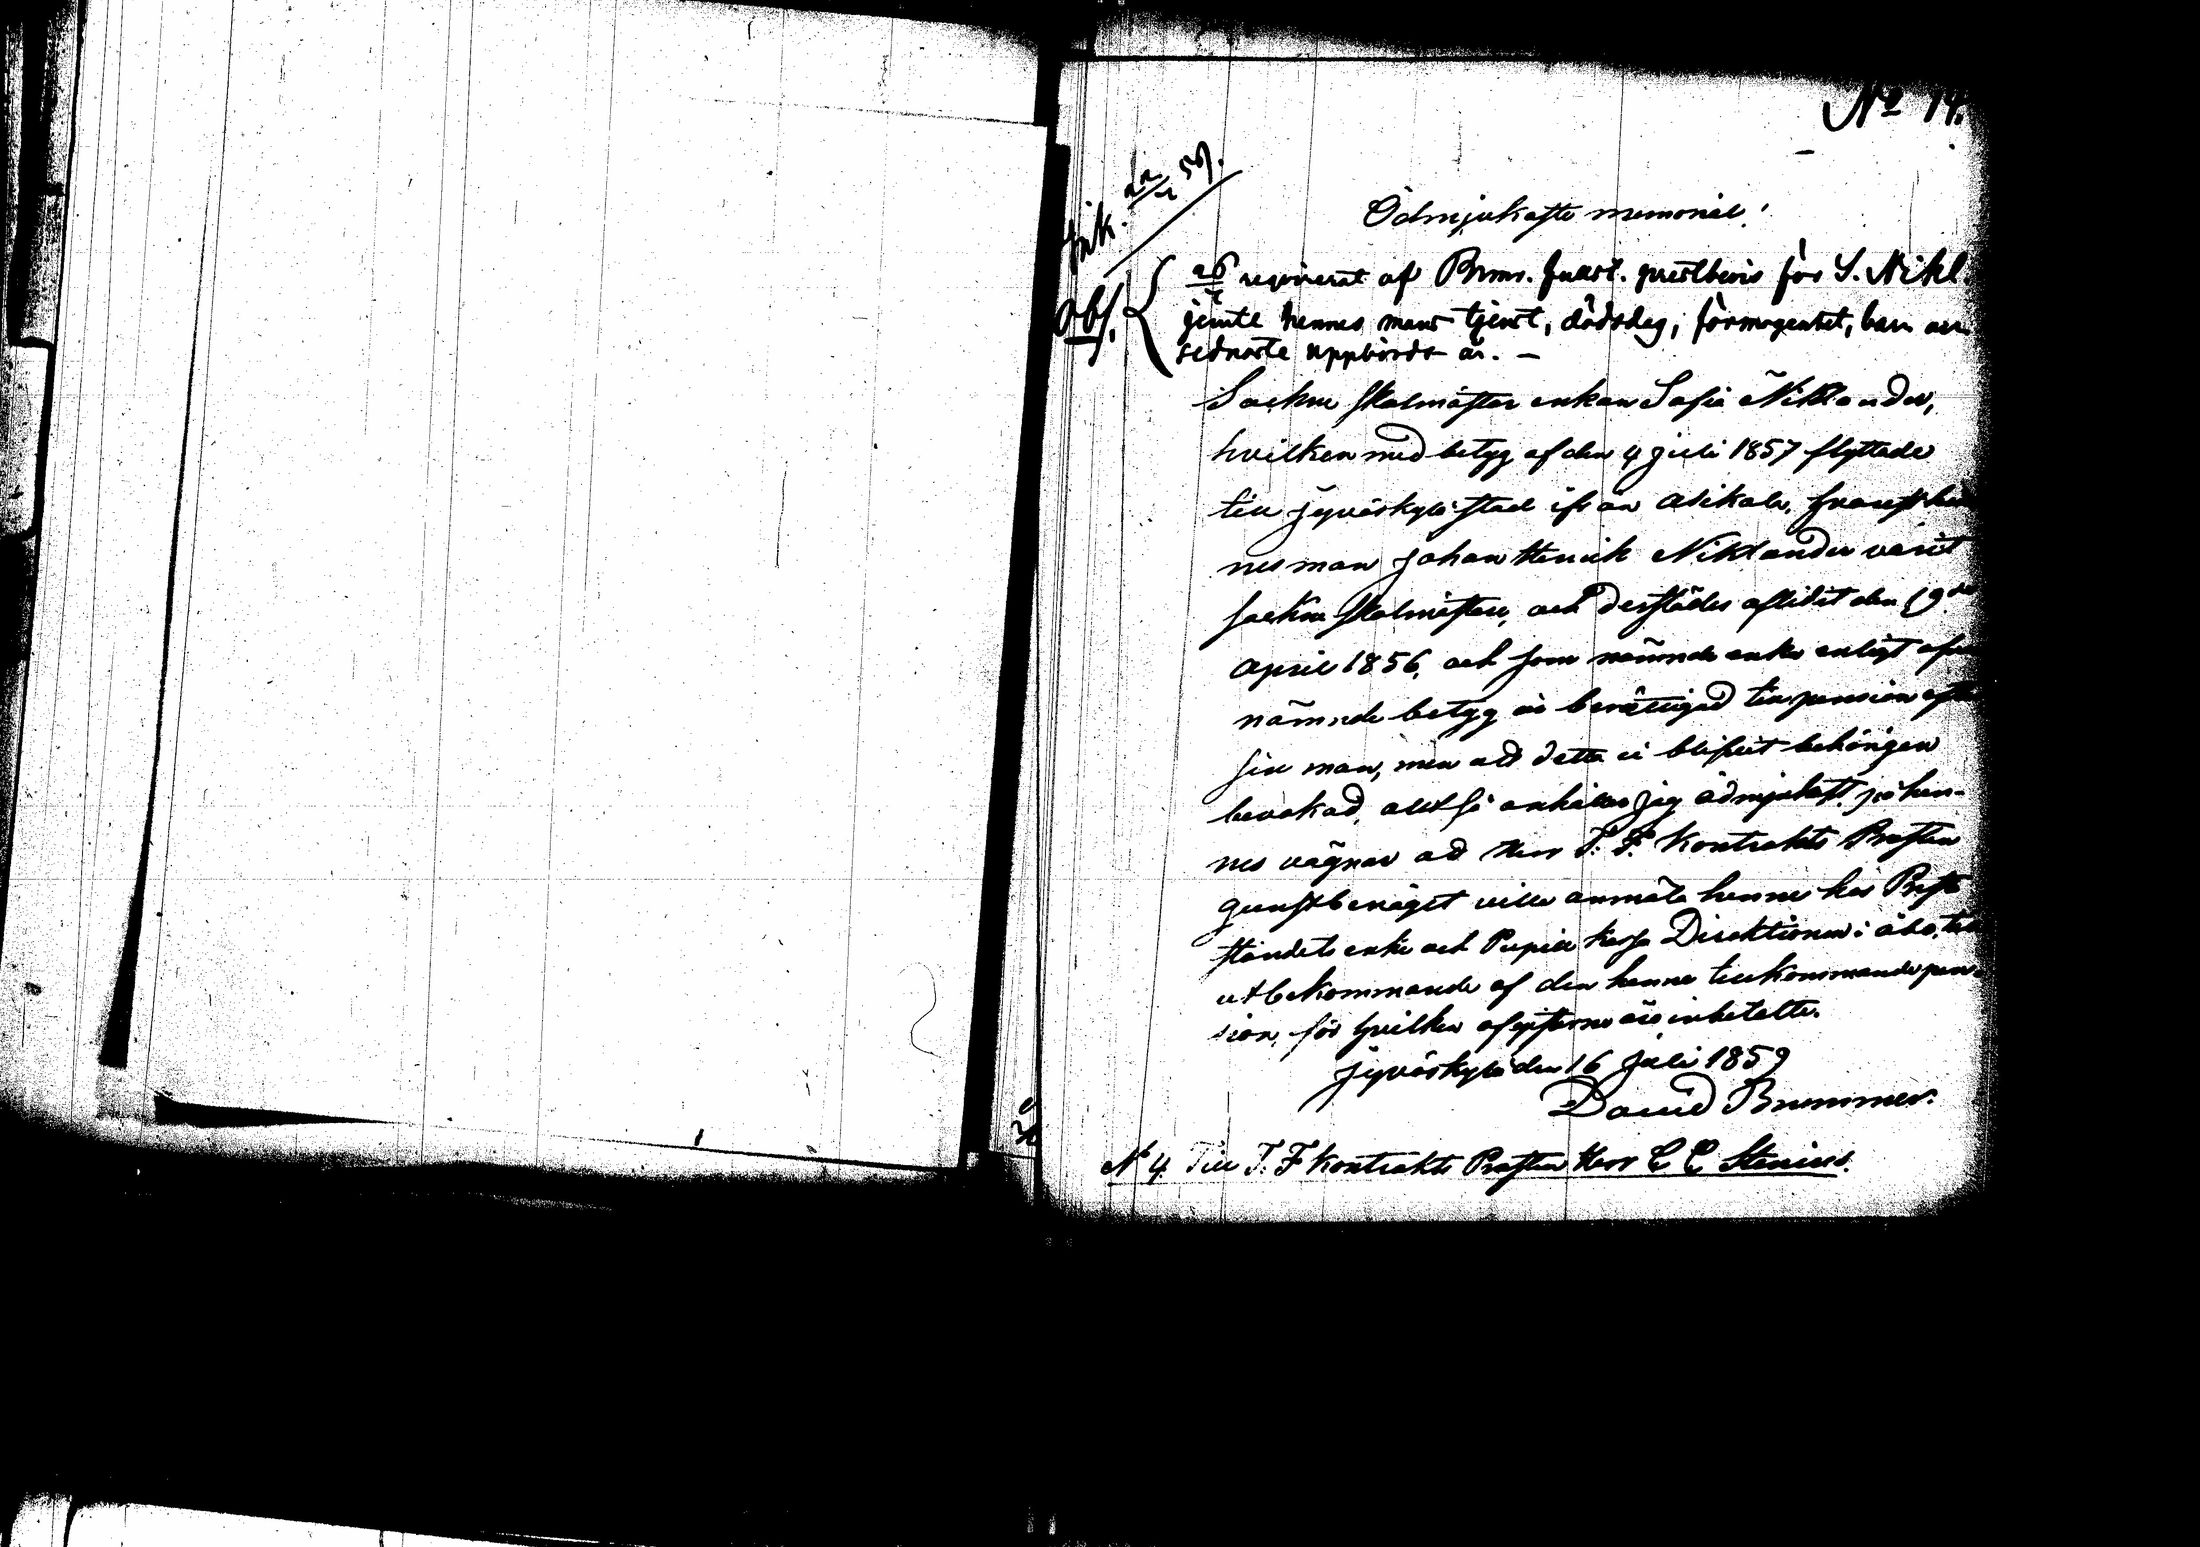 No 14.
Ink. 22/7 59.
Ödmjukaste memorial!
Obs. 26/7 reqvirerat af Brum. prestbevis för S. Nikl.
jemte hennes mans tjenst, dödsdag, förmögenhet, barn
sednaste uppbörds år. —
Sockne skolmästar enkan Sofia Niklander,
hvilken med betyg af den 4 juli 1857 flyttade
till Jyväskylä stad ifrån Asikala, hvarest hen
nes man Johan Henrik Niklander varit
Sockne skolmästare, och derstädes aflidit den 19de
April 1856, och som nämnde enka enligt ofvan
nämnde betyg är berättigad till pension efter
sin man, men att detta ei blifvit behörigen
bevakad, alltså anhåller jag ödmjukast på hen-
nes vägnar att Herr T. F. Kontrakts Prosten
gunstbenäget ville anmäla henne hos Preste
ståndets enke och Pupill kassa Direktionen i Åbo, till
utbekommande af den henne tillkommande pen-
sion, för hvilken afgifterna äro inbetalte.
Jyväskylä den 16 Juli 1859
David Brummer.
No 4. Till T. F Kontrakts Prosten Herr C C Stenius.